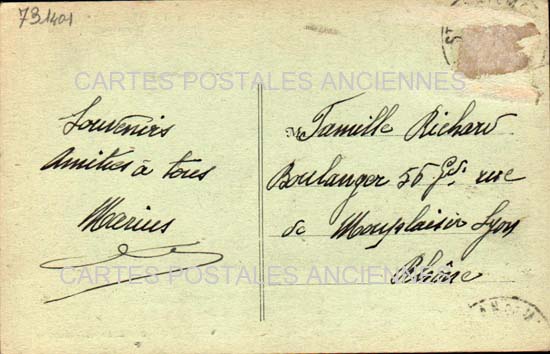 731401
CARTES POSTALES ANCIENNES
Souvenirs
Amitiés à tous
Marius
M Famille Richard
Boulanger 56 Gde rue
de Monplaisir Lyon
Rhône
CARTES POSTALES ANCIENNES